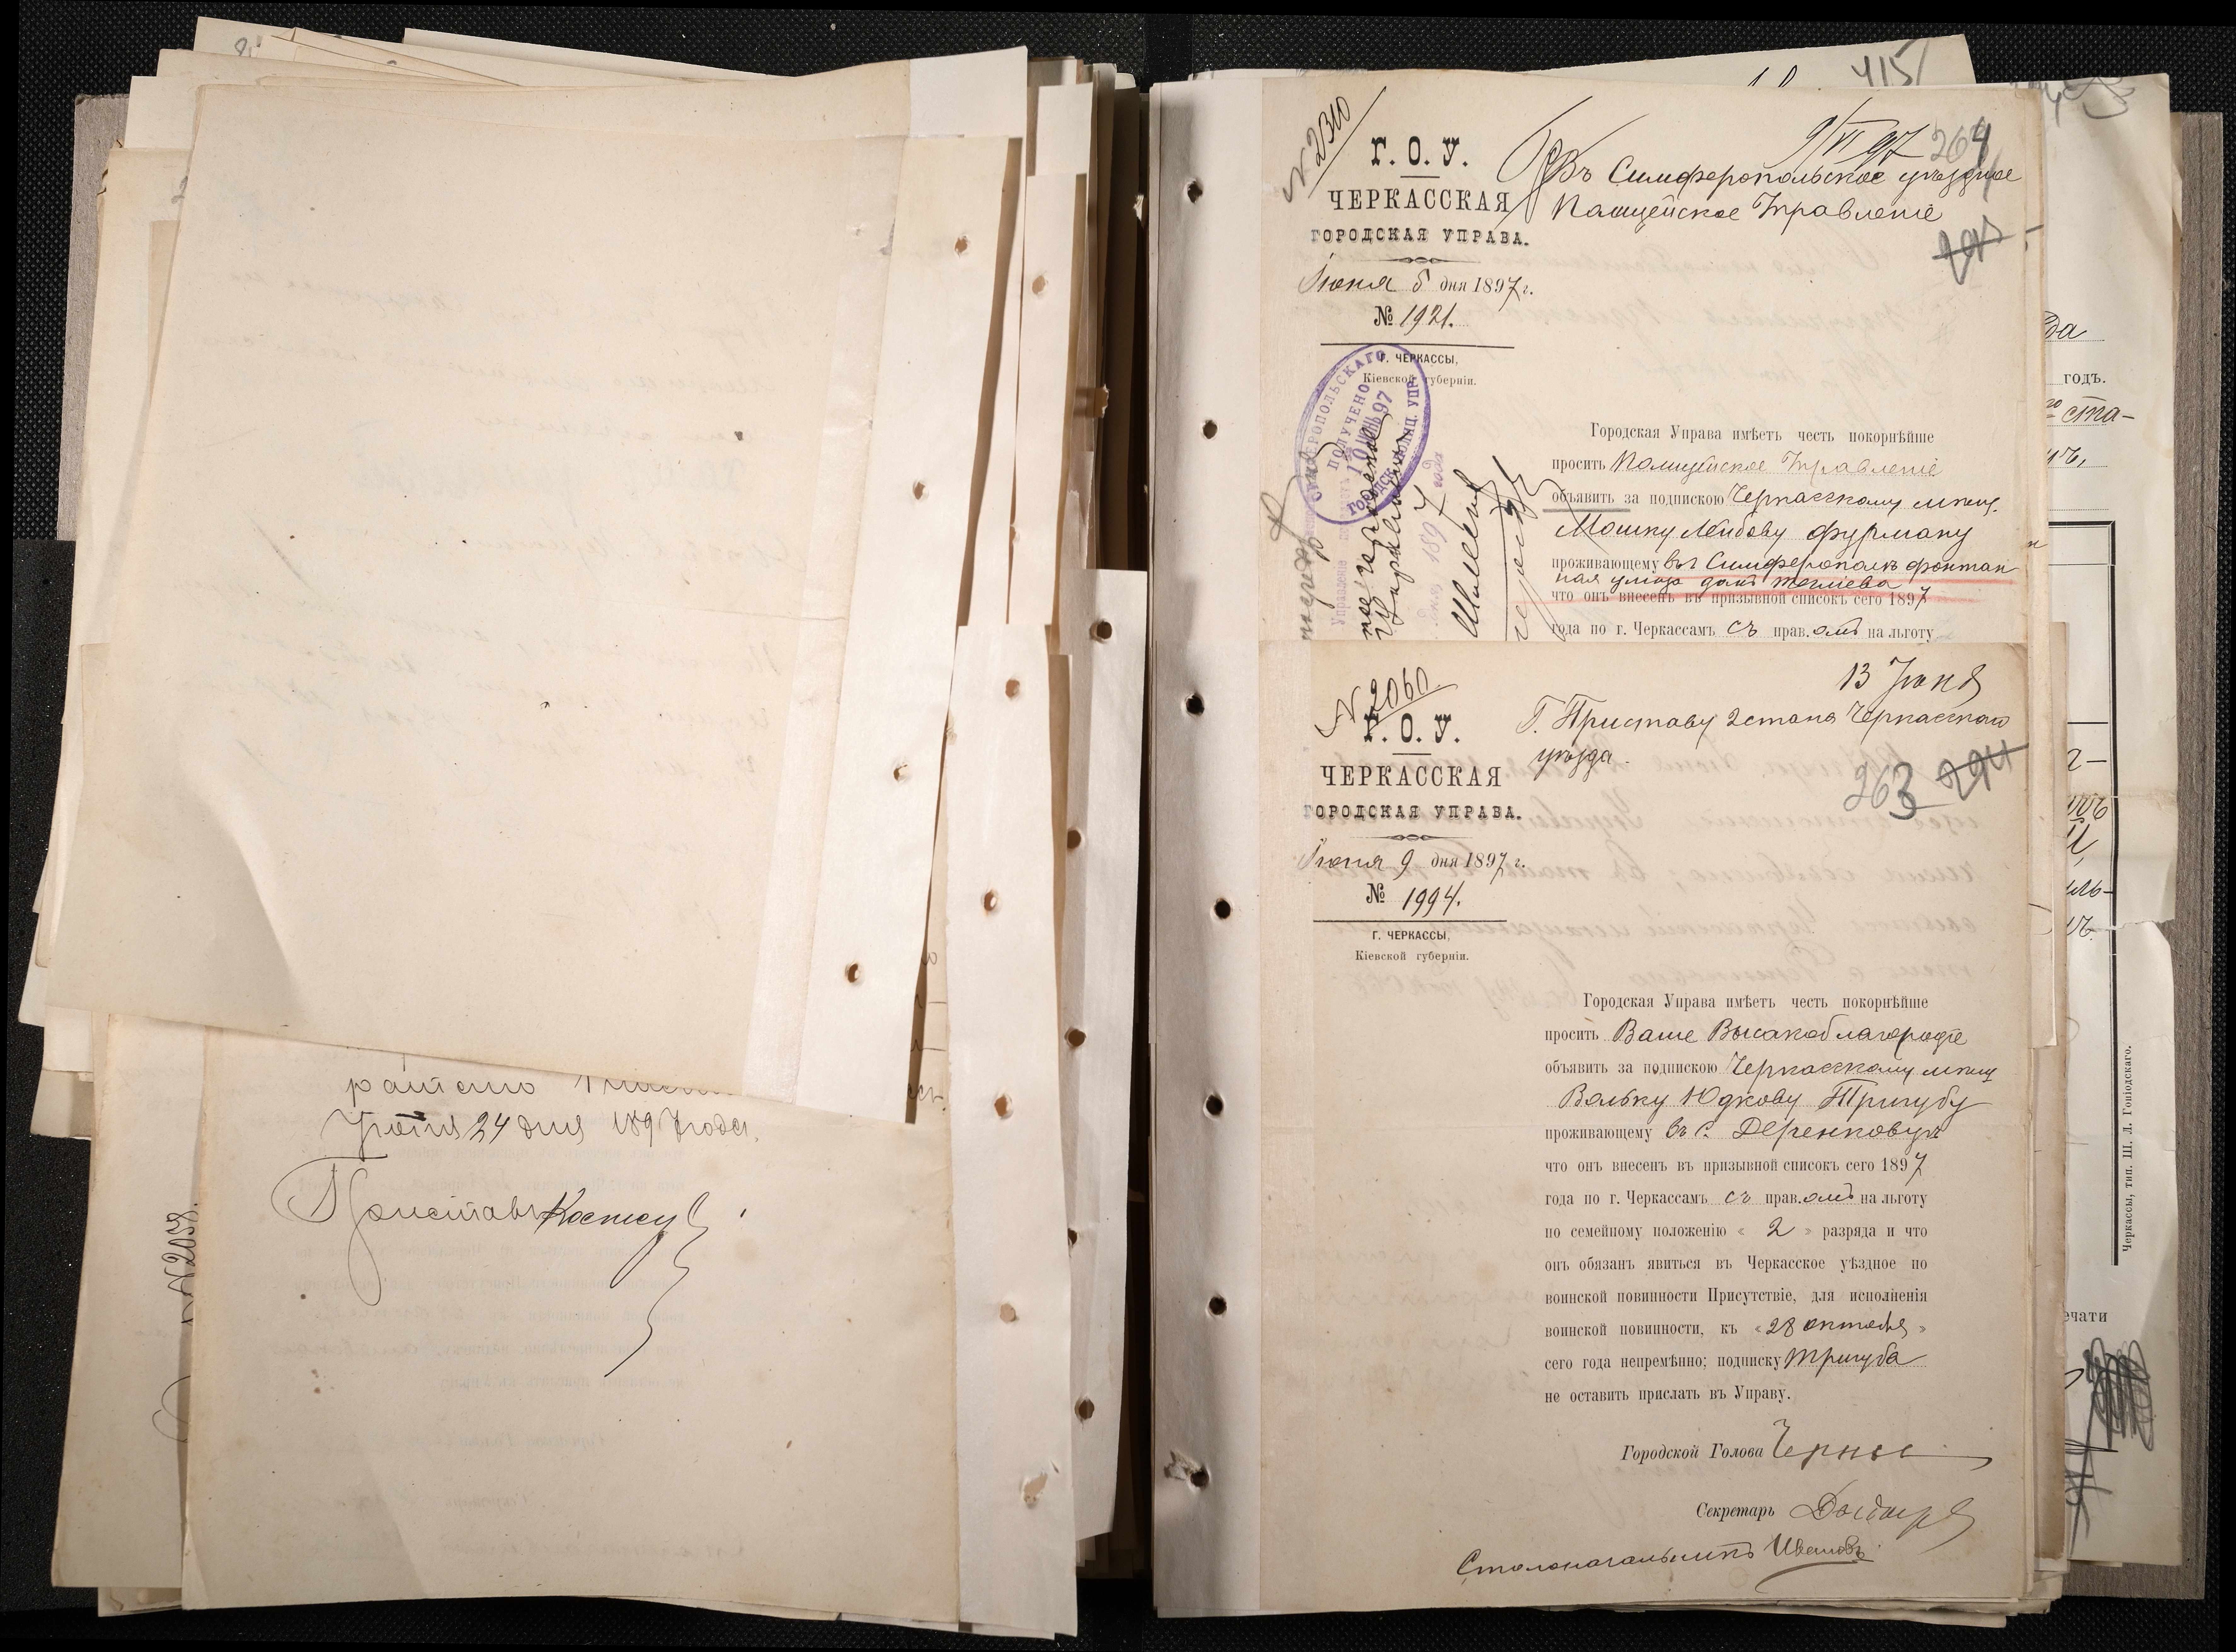 Іюня 24 дня 1897 года.
Приставъ
N 2058.
415
N 2310
Г. О. У.
ЧЕРКАССКАЯ
ГОРОДСКАЯ УПРАВА.
Іюня 5 дня 1897 г.
№ 1921.
Г. ЧЕРКАССЫ,
Кіевской губерніи.
9/VI 97
264
Въ Симферопольское уѣздное
Полицейское Управленіе
295
ПОЛУЧЕНО
10 ИЮН. 97
Городская Управа имѣетъ честь покорнѣйше
просить Полицейское Управленіе
объявить за подпискою Черкасскому мѣщ.
Мошку Лейбову Фурману
проживающему въ г. Симферополѣ фонтан
ная улица домъ
что онъ внесенъ въ призывной списокъ сего 1897
года по г. Черкассамъ съ прав.омъ на льготу
N 2060
Г. О. У.
ЧЕРКАССКАЯ
ГОРОДСКАЯ УПРАВА.
Іюня 9 дня 1897 г.
№ 1994.
Г. ЧЕРКАССЫ,
Кіевской губерніи.
13 Іюня
Г. Приставу 2 стана Черкасскаго
уѣзда.
263 294
Городская Управа имѣетъ честь покорнѣйше
просить Ваше Высокоблагородіе
объявить за подпискою Черкасскому мѣщ
Вольку Юдкову Тригубу
проживающему въ с. Деренковцѣ
что онъ внесенъ въ призывной списокъ сего 1897
года по г. Черкассамъ съ прав.омъ на льготу
по семейному положенію « 2 » разряда и что
онъ обязанъ явиться въ Черкасское уѣздное по
воинской повинности Присутствіе, для исполненія
воинской повинности, къ «28 октября»
сего года непремѣнно; подписку Тригуба
не оставить прислать въ Управу.
Городской Голова
Секретарь
Столоначальникъ Ивановъ
да
годъ.
ста-
ечати
Черкассы, тип. Ш. Л. Гоніодскаго.